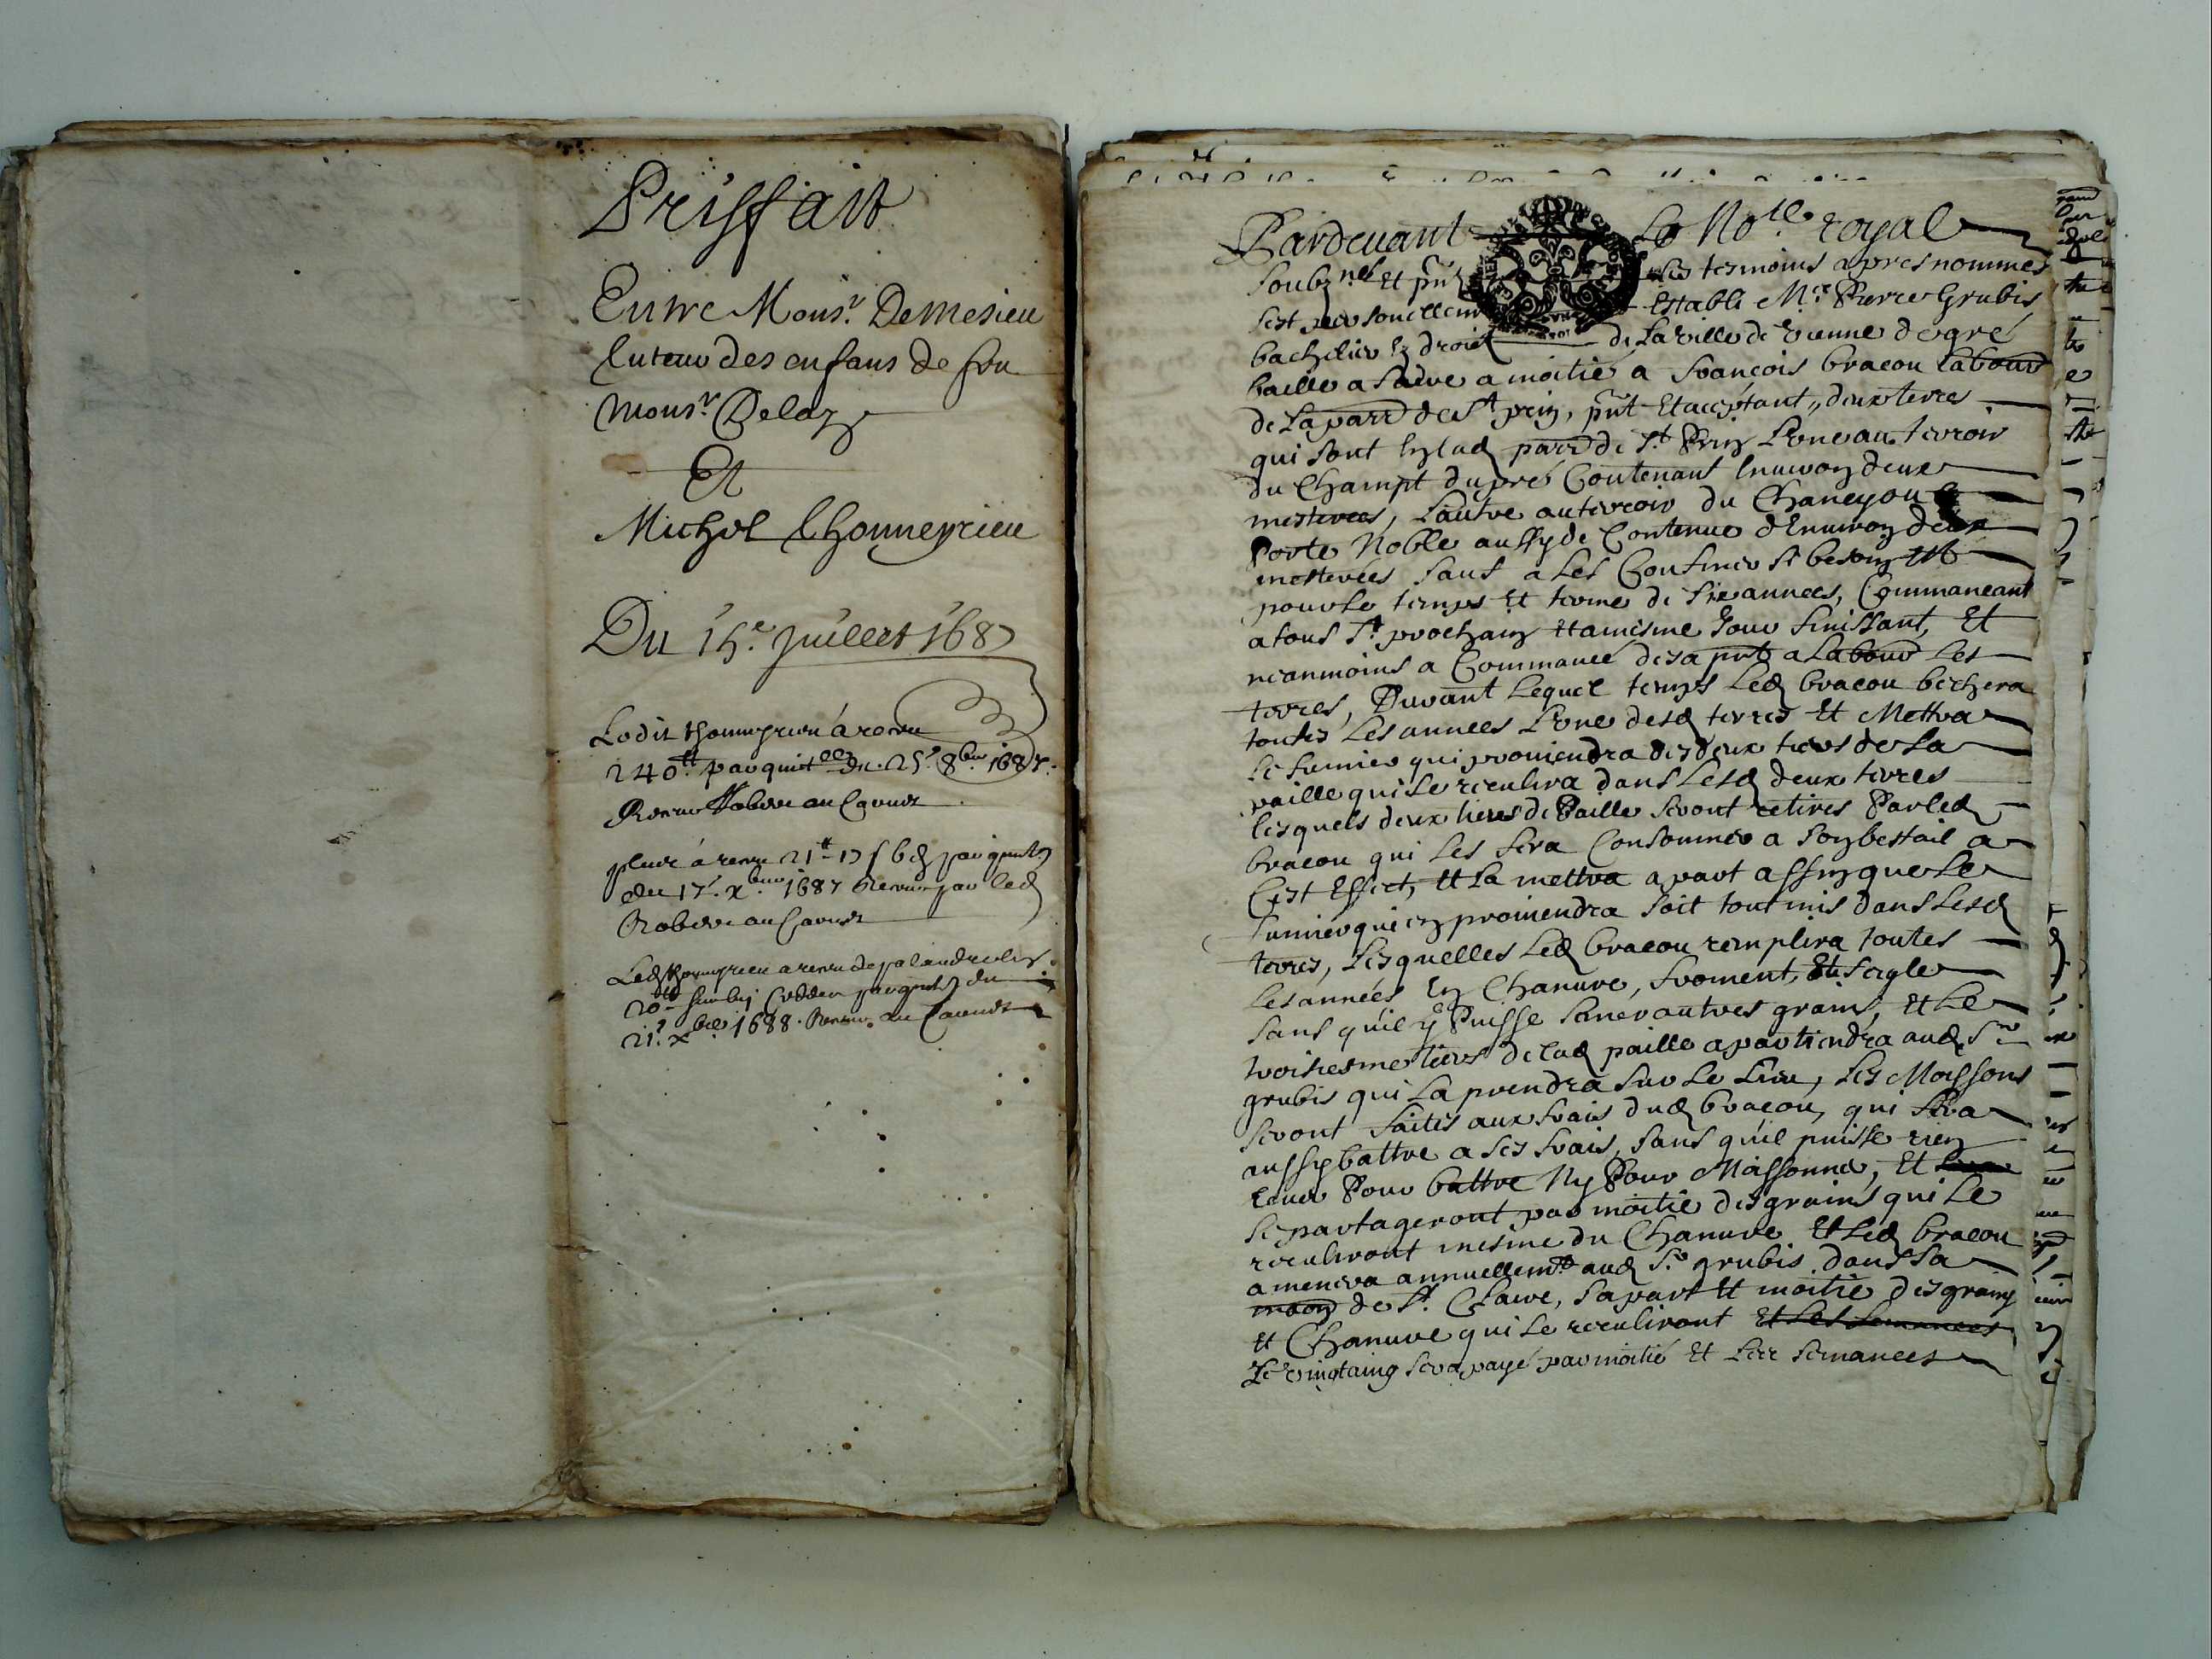 Prisfait
Entre Monsr. Demesieu
tuteur des enfans de feu
Monsr. Delaz
Et
Michel Thomeyrieu
Du 15e. Juillet 1687
Ledit Thomeyrieu à receu
240tt par quitce du 25e 8bre 1687.
Receu Robin au Carnet
plus à receu 21tt
du 17e. xbre 1687 Receu par led
Robin au Carnet
Led Thomeyrieu a receu
20tt du
21e. xbre 1688. Receu au Carnet
Pardevant Le Nore royal
Soubzne et pnt les tesmoins apres nommés
sest personellemt establi Mre Pierre Grubis
bachelier en droit de La ville de Vienne de gré
baille a faire a moitié a françois bracou Labourr
de La parr de St prin, pnt Et acceptant, deux terres
qui sont en lad parr de St Prin L'une au terroir
du Champt du pré Contenant Environ deux
mesterées, Lautre au terroir du Chaneyou
Porte Noble aussy de Contenue d'Environ deux
mesterées sauf a les Confiner si besoin est
pour le temps et terme de six années, Commanceant
a tous Sts prochain et a mesme jour finissant, Et
neanmoins a Commancé des a pnt a Labourr les
terres, Durant Lequel temps Led bracou bechera
toutes Les années L'une desd terres et Mettra
le fumier qui proviendra des deux tiers de La
paille qui se reculira dans Lesd deux terres
lesquels deux tiers de Paille seront retires Par led
bracou qui les fera Consommer a son bestail a
Cest Effect, et La mettra a part affin que Le
fumier qui en proviendra soit tout mis dans Lesd
terres, Lesquelles Led bracou remplira toutes
les années En Chanuve, froment, Et seigle
sans qu'il y Puisse semer autres grains, et Le
troisiesme tiers de lad paille apartiendra aud Sr
grubis qui La prendra sur Le Lieu, Les Moissons
seront faites aux frais dud bracou, qui fera
aussy battre a ses frais, sans qu'il puisse rien
lever Pour battre Ny Pour Moissonner, Et
se partageront par moitié des grains qui se
reculiront mesme du Chanuve Et Led bracou
amenera annuellemt aud Sr grubis dans sa
maon de St. Claire, sa part et moitié des grains
et Chanuve qui se reculiront Et Les semances
Le vingtain sera payé par moitié Et Les semances